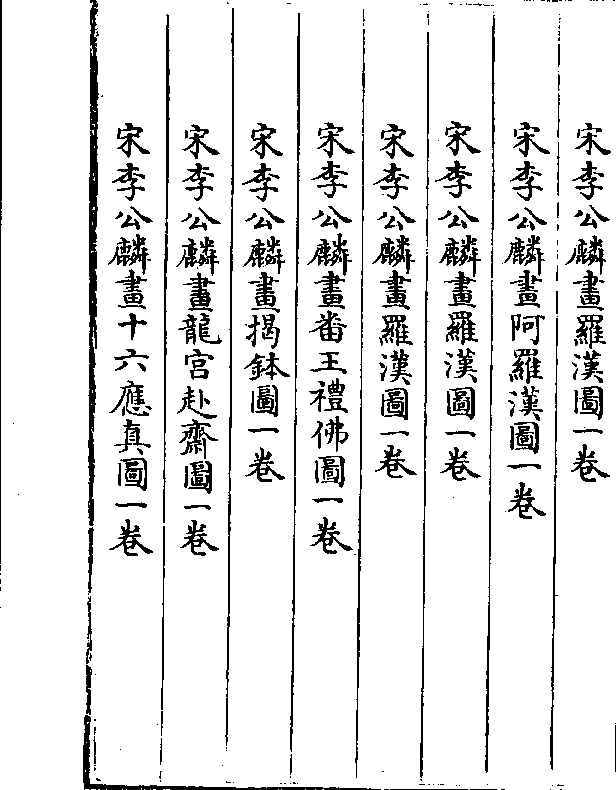 宋李公麟畫羅漢圖一卷
宋李公麟畫阿羅漢圖一卷
宋李公麟畫羅漢圖一卷
宋李公麟畫羅漢圖一卷
宋李公麟畫畨王禮佛圖一卷
宋李公麟畫揭鉢圖一卷
宋李公麟畫龍宫赴齋圖一卷
宋李公麟畫十六應真圖一卷